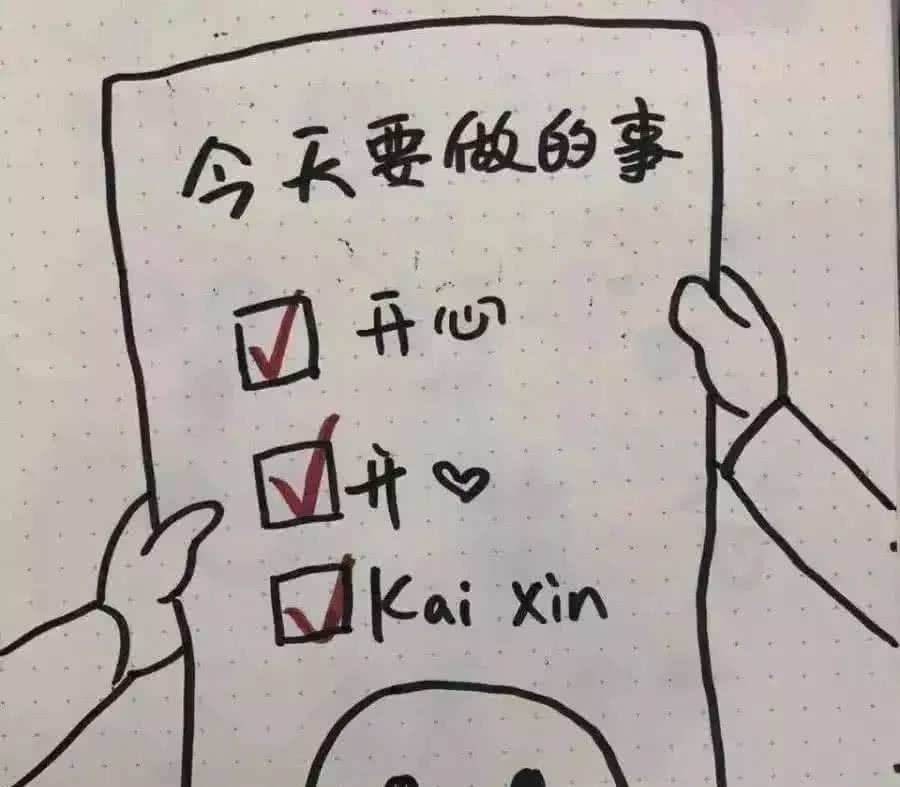 今天要做的事
开心
开♥
Kai xin